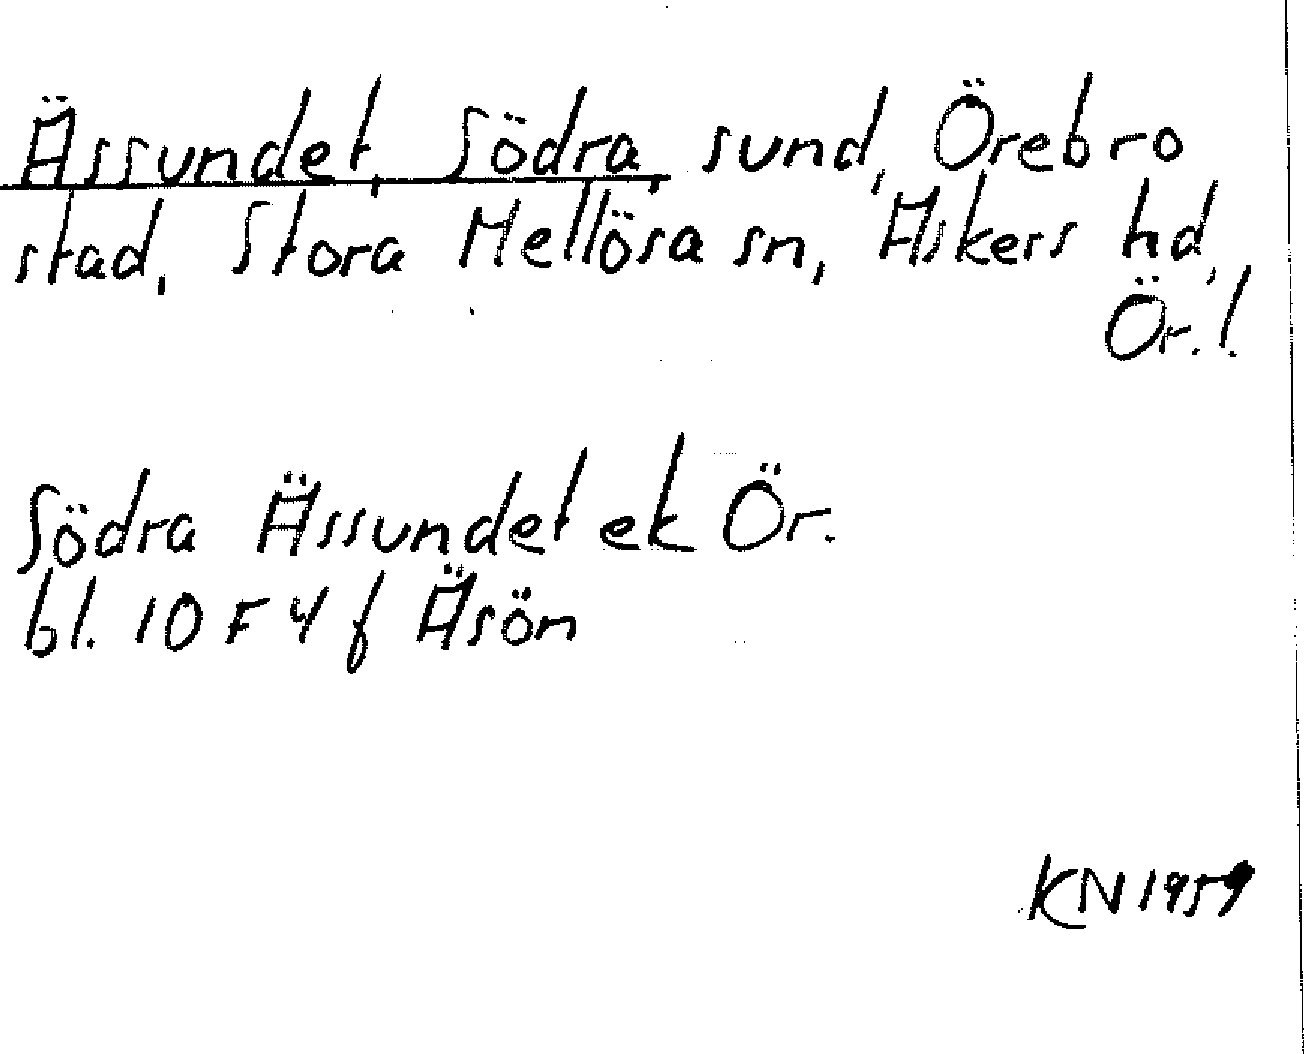 Ässundet, Södra, sund, Örebro
stad, Stora Mellösa sn, Askers hd,
Ör.l.
Södra Ässundet ek Ör.
bl. 10 F 4 f Äsön
KN 1959